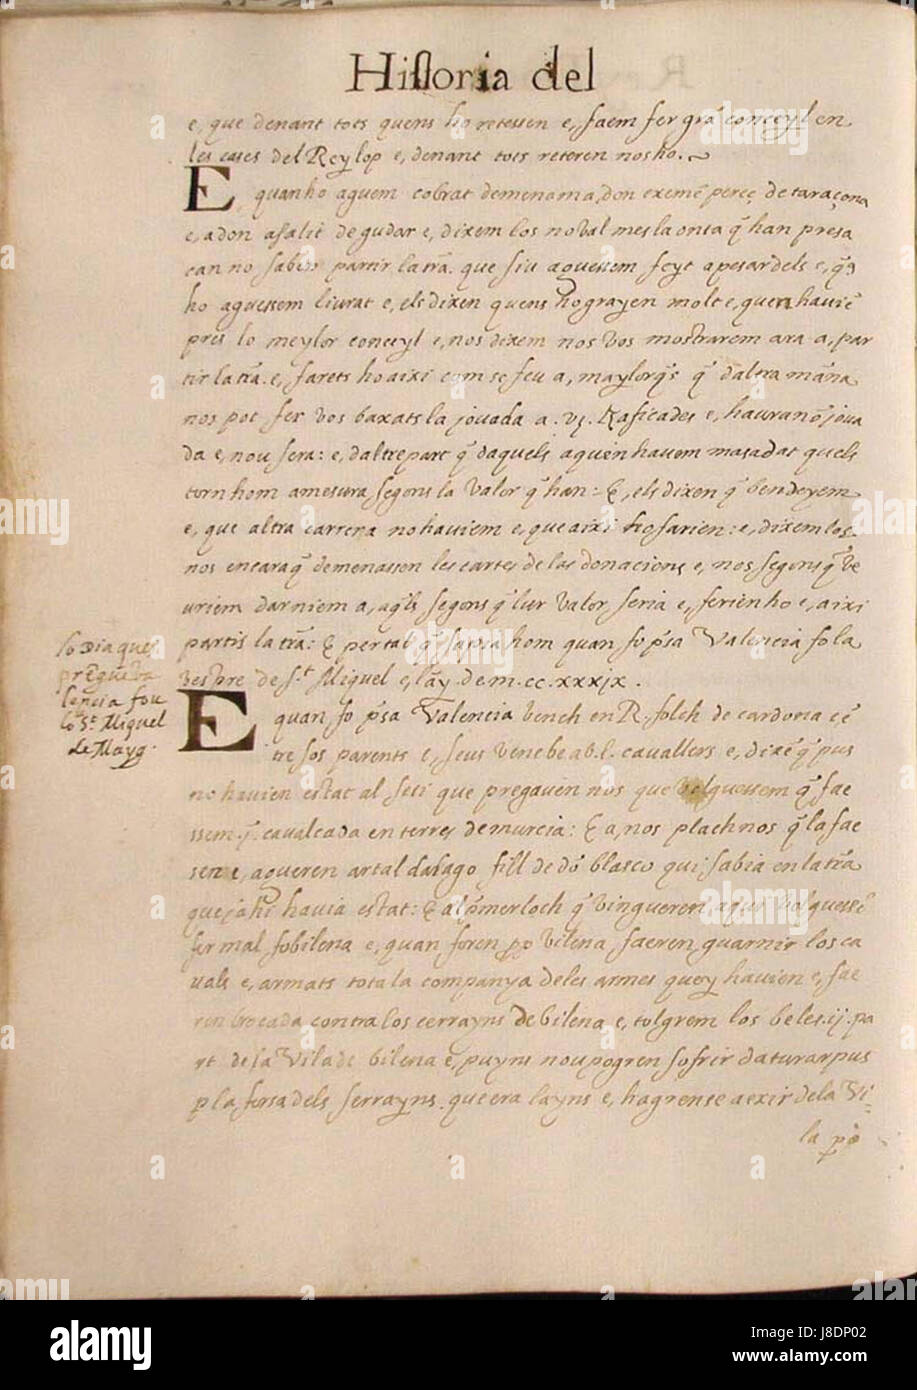 Historia del
e, que denant tots quens ho retessen e, faem fer grā conceyl en
les cases del Rey lop e, denant tots reteren nosho.
E quan ho aguem cobrat demenam a, don exemē pereç de taraçona
e, a don asalit de gudar e, dixem los no val mes la onta q̄ han presa
can no saben partir la trā. que siu aguessem feyt a pesar dels e, q̄
ho aguessem liurat e, els dixen quens ho grayen molt e, quen haviē
pres lo meylor conceyl e, nos dixem nos vos mostrarem ara a, par
tir la trā. e, farets ho aixi com se feu a, maylorq̄s q̄ daltra mān̄a
nos pot fer vos baxats la jouada a .vj. Kaficades e, hauran ō joua
da e, nou sera: e, daltre part q̄ daquels a quen havem masa dat quels
torn hom a mesura segons la valor q̄ han: E, els dixen q̄ ben deyem
e, que altra carrera no haviem e, que aixi ho farien: e, dixem los
nos encara q̄ demenassen les cartes de las donacions e, nos segons q̄ ve
uriem darniem a, aq̄ls segons q̄ lur valor seria e, ferien ho e, aixi
partis la trā: E per tal q̄ sapia hom quan fo p̄sa Valencia fo la
vespre de s.t Miquel e, lāy. de m.cc.xxxjx.
lo dia que
preseren Va
lencia fou
lo S.t Miquel
de Mayg.
E quan fo p̄sa Valencia vench en R. folch de cardona ē
tre sos parents e, seus ven be ab .l. cavallers e, dixē q̄ pus
no havien estat al seti que pregaven nos que volguessem q̄ fae
ssem .j. cavalcada en terres de murcia: E a, nos plach nos q̄ la fae
sen e, agueren artal dalago fill de dō blasco qui sabia en la trā
que ja hi havia estat: E al p̄mer loch q̄ vingueren aqui volguesē
fer mal fo bilena e, quan foren p̄ bilena faeren guarnir los ca
vals e, armats tota la companya de les armes que y havien e, fae
ren brocada contra los cerrayns de bilena e, tolgrem los be les .ij. pa
rt de la Vila de bilena e, puyns nou pogren sofrir daturar pus
p la forsa dels serrayns. que era layns e, hagrense a exir de la Vi=
la pō